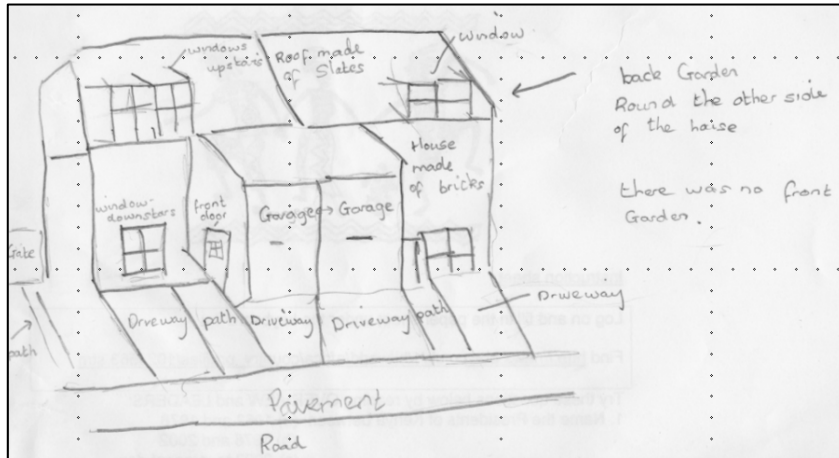 windows
upstairs
Roof made
of Slates
window
back Garden
Round the other side
of the house
there was no front
Garden.
House
made
of bricks
window
downstairs
front
door
Garage
Garage
Gate
path
Driveway
path
Driveway
Driveway
path
Driveway
Pavement
Road